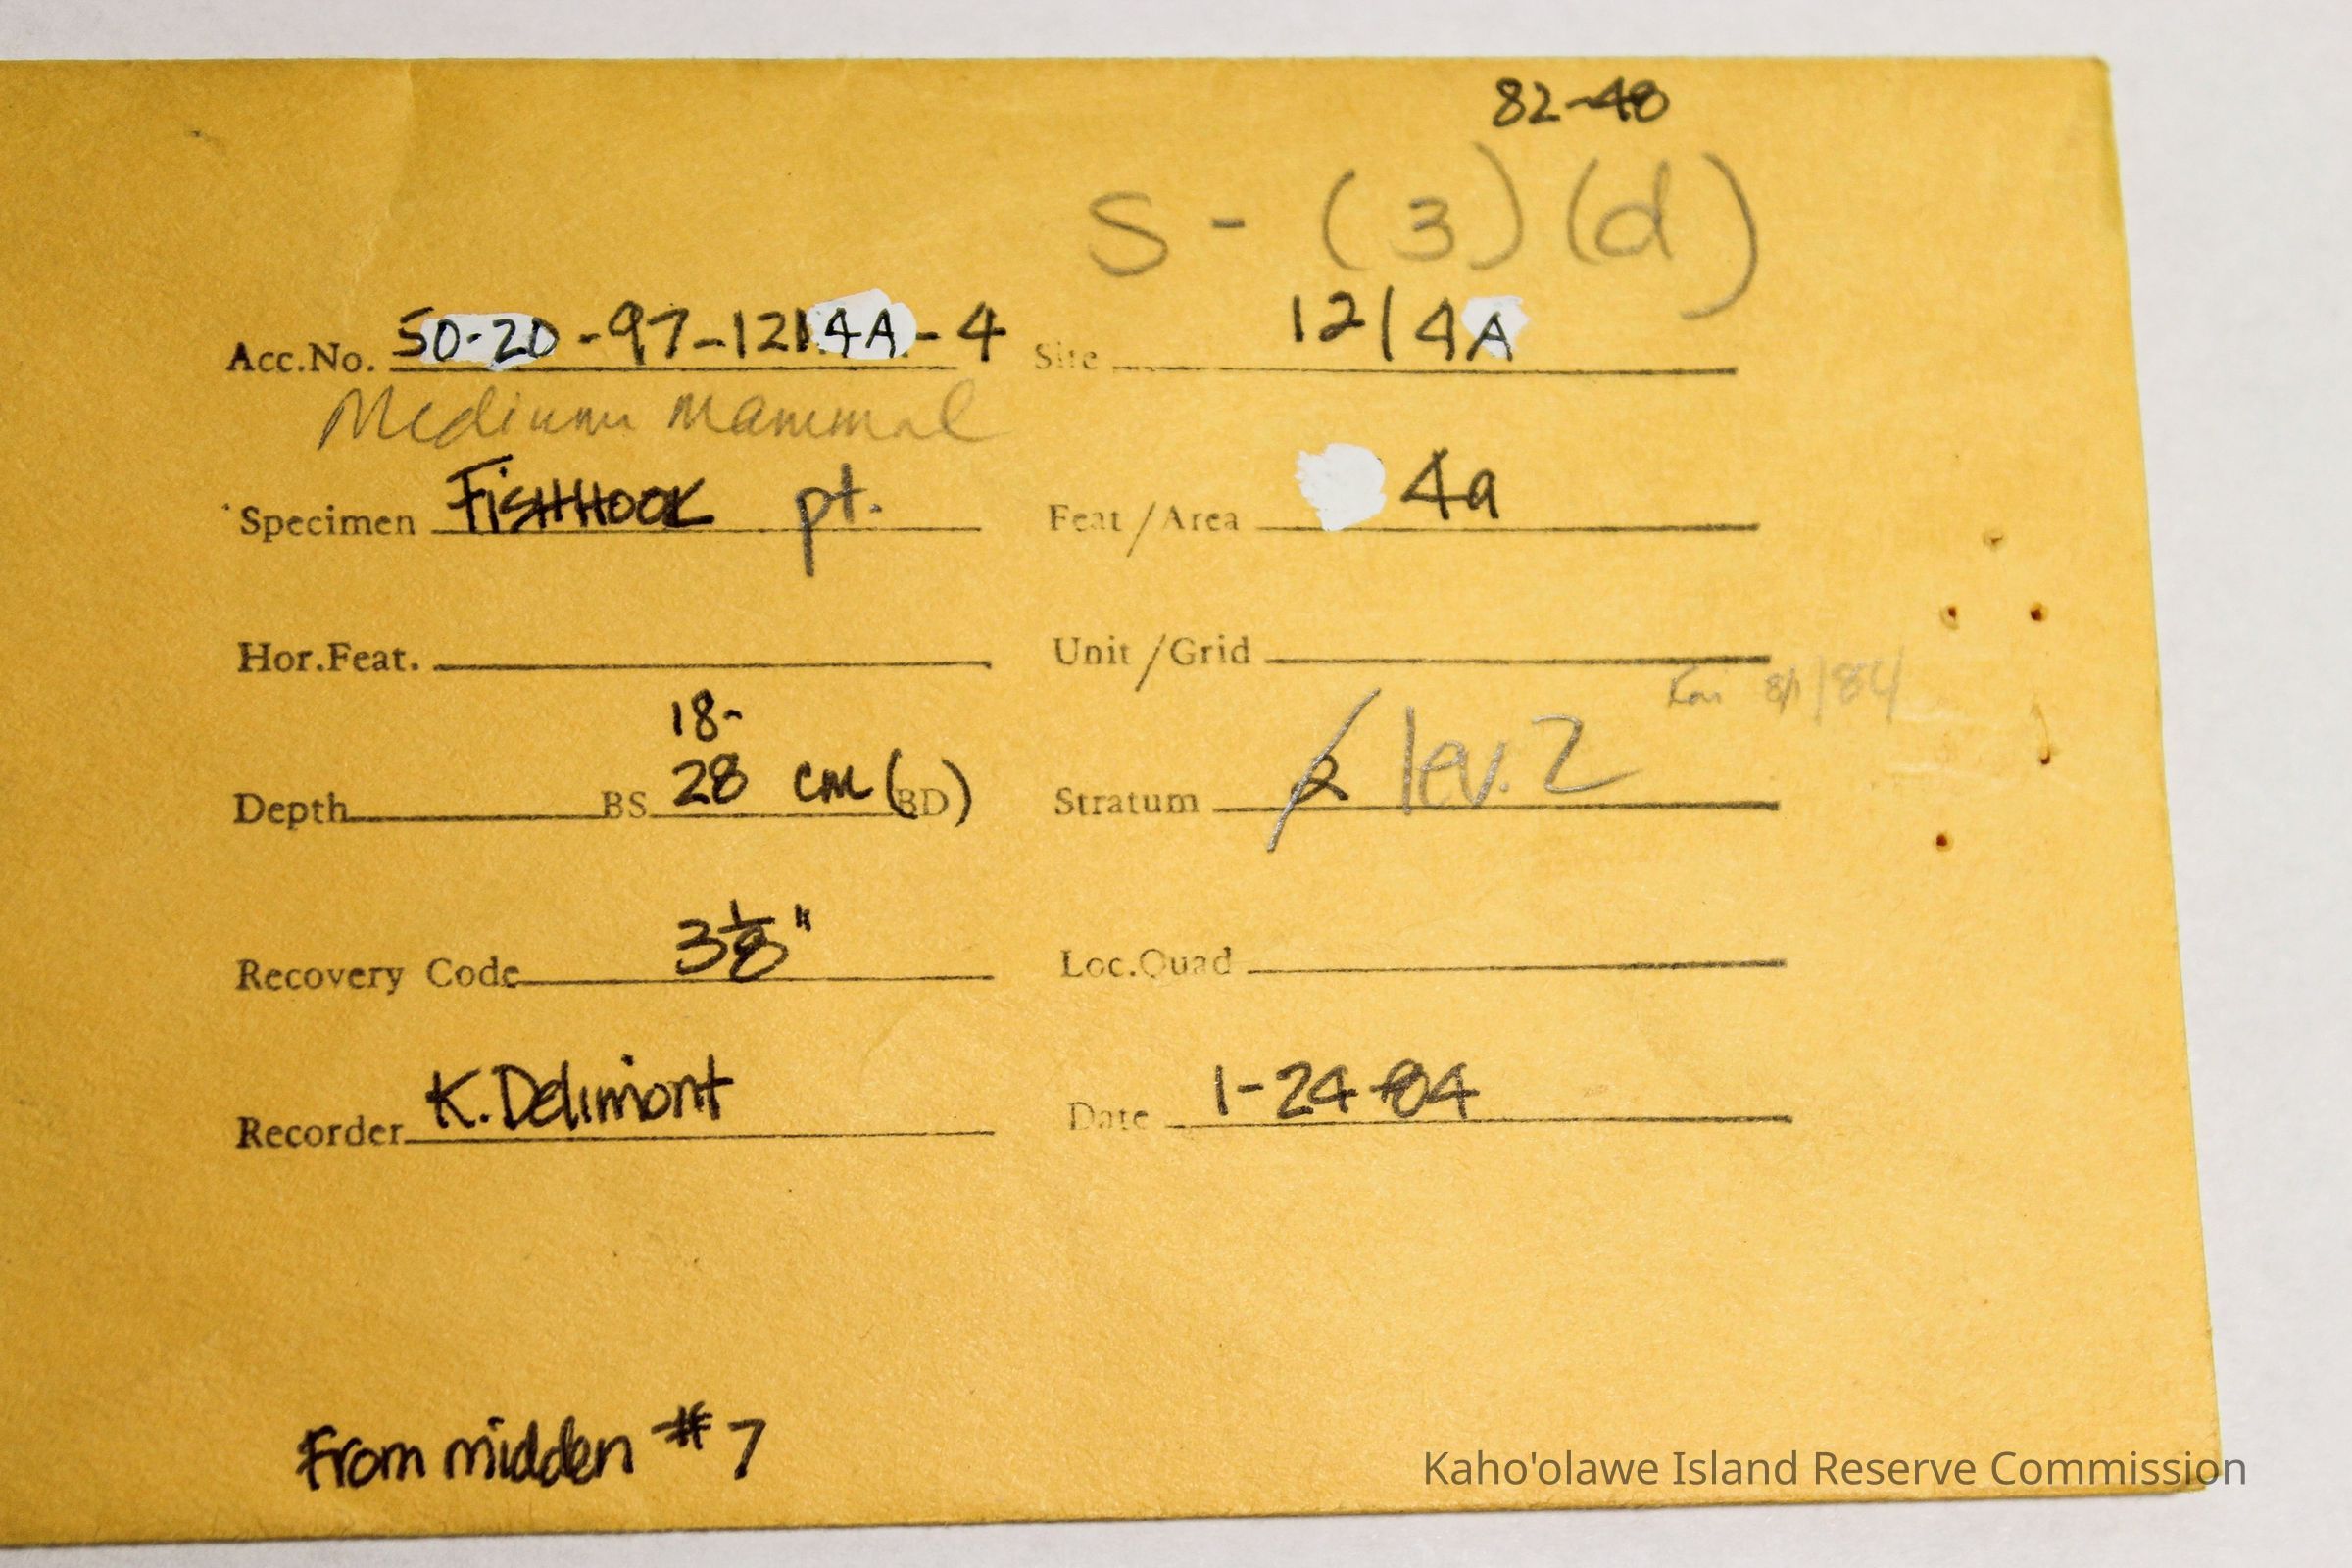 82-48
S - (3) (d)
Acc.No. 50-20-97-1214A-4 Site 1214A
Medium Mammal
Specimen FISHHOOK pt. Feat/Area 4a
Hor.Feat. Unit/Grid
8/1/84
18-
Depth BS 28 cm (BD) Stratum 2 lev. 2
Recovery Code 3 1/8" Loc.Quad
Recorder K. Delimont Date 1-24-84
From midden #7
Kaho'olawe Island Reserve Commission